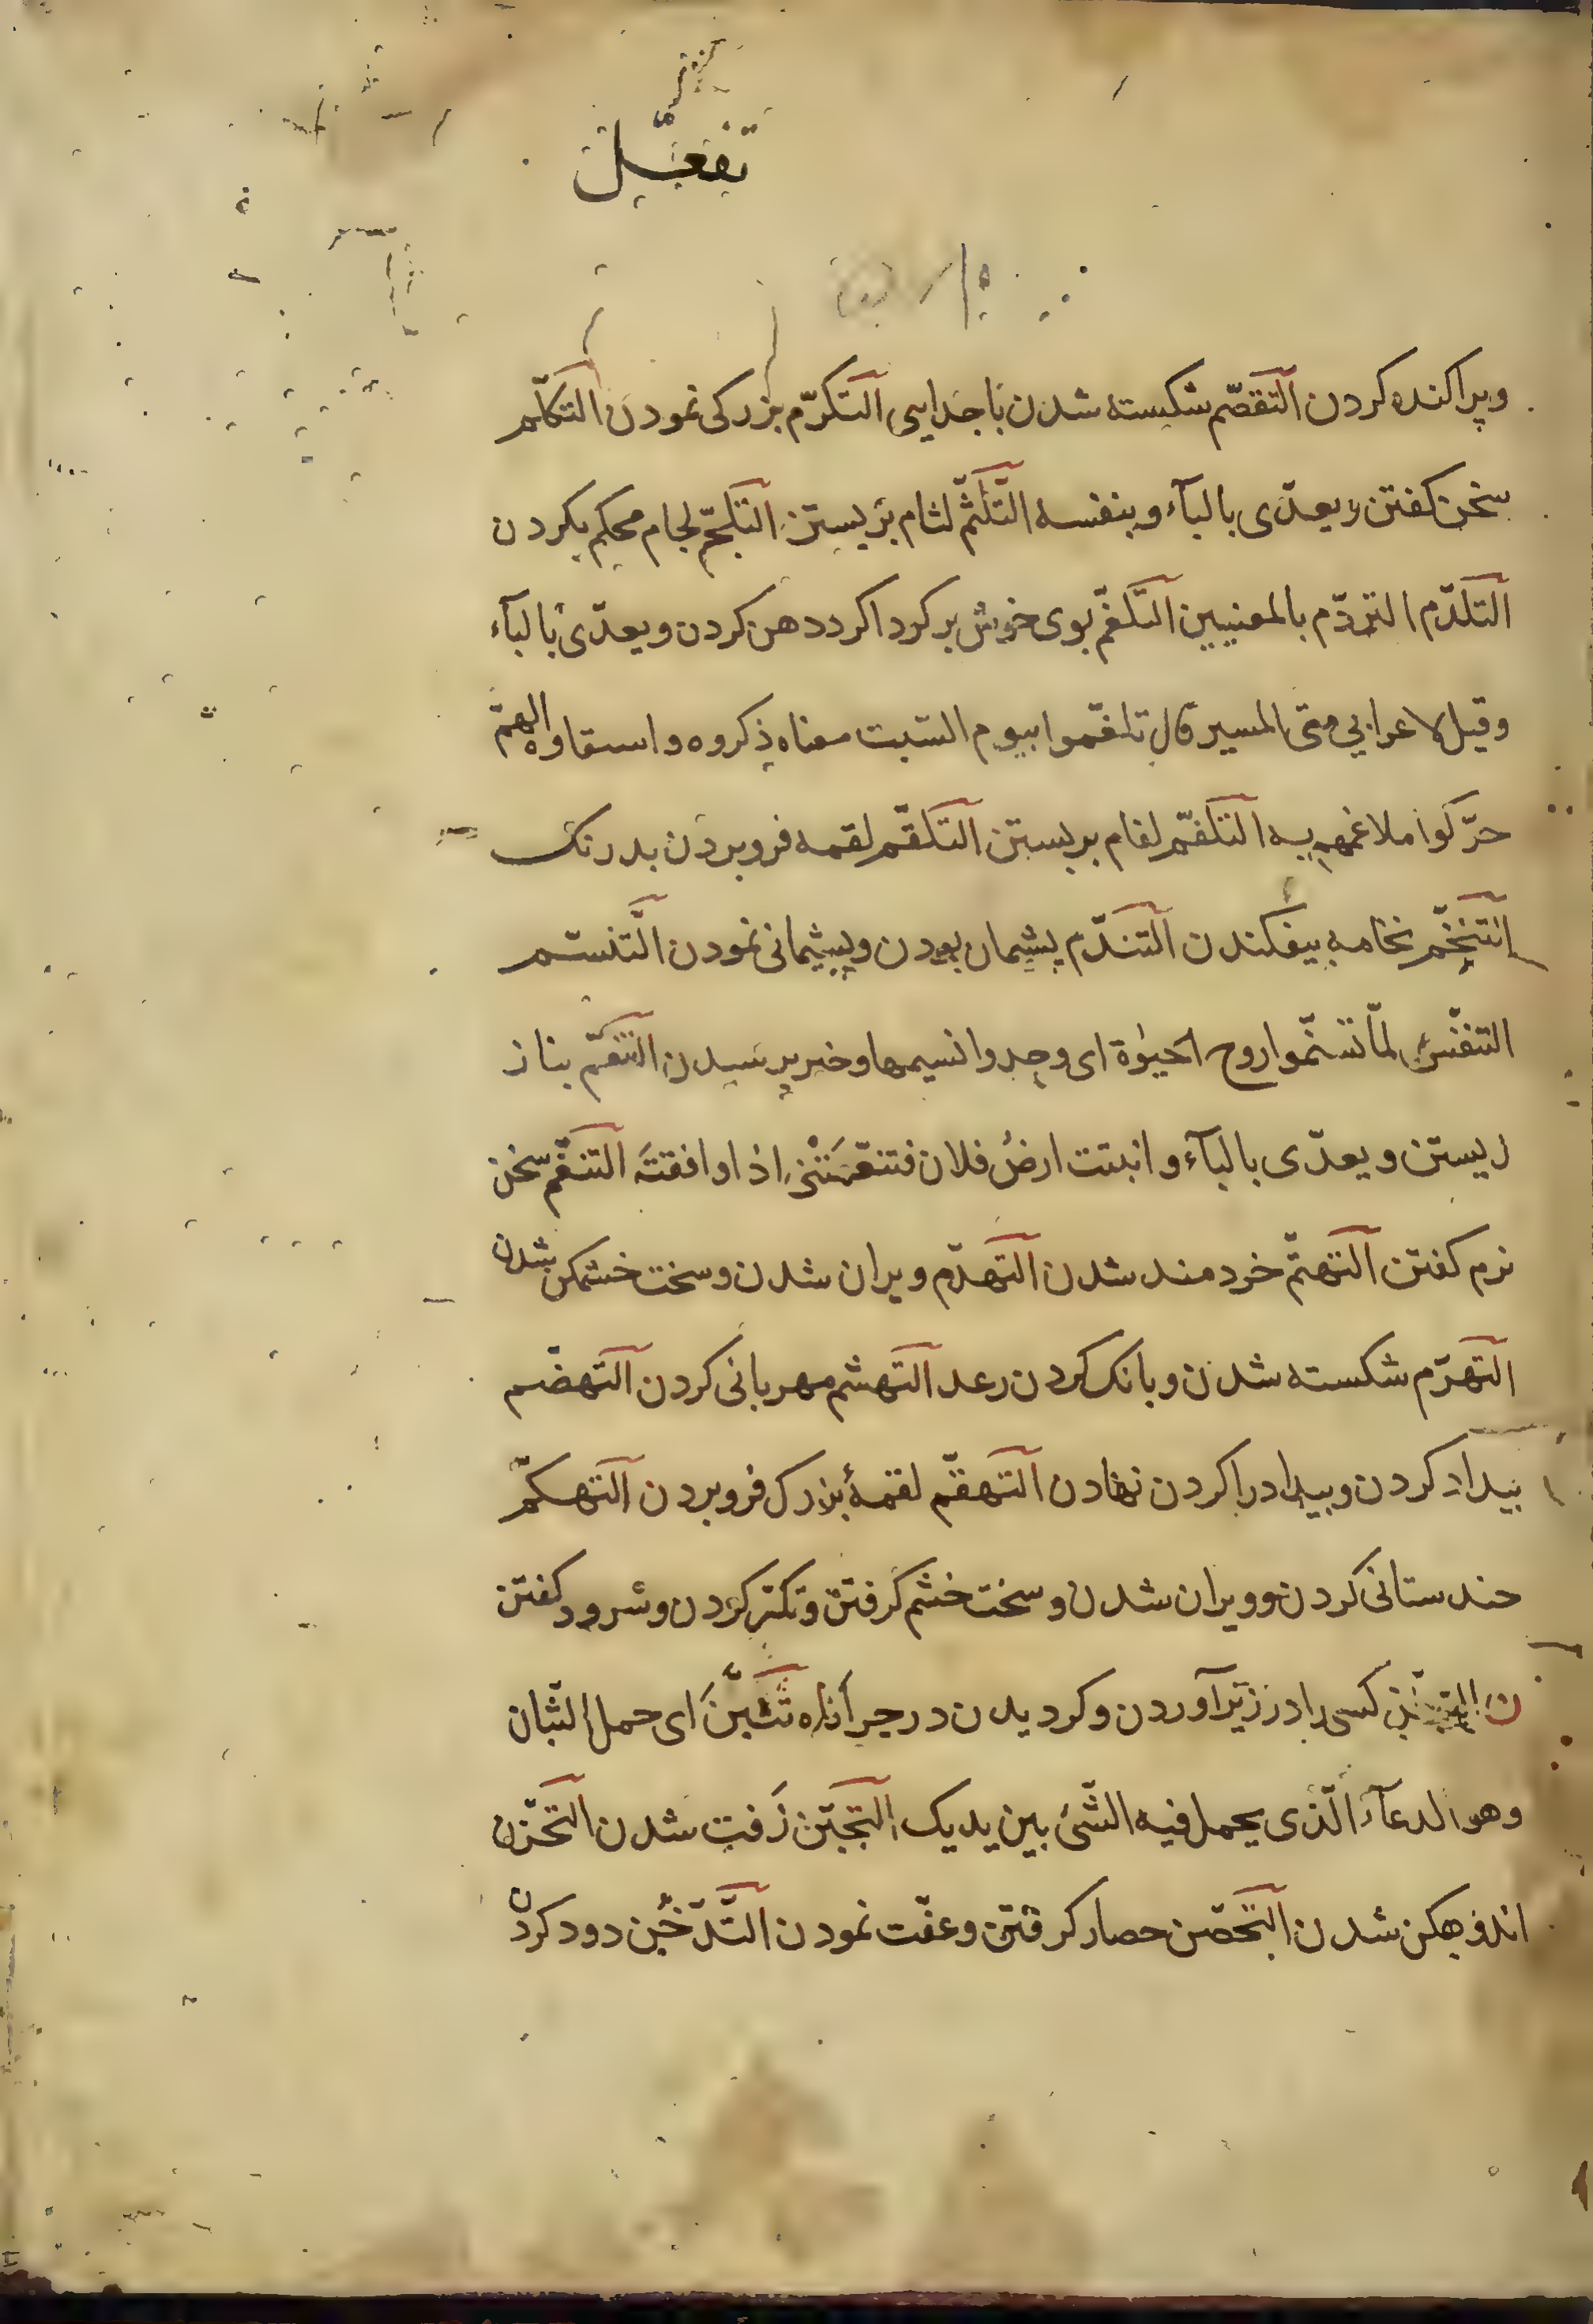 تفعّل
وپراکنده کردن التقصّم شکسته شدن با جدایی التکرّم بزرکی نمودن التکلّم
سخن کفتن ویعدّی بالبآء وبنفسه التّلثّم لثام بربستن التلجّم لجام محکم بکردن
التلدّم التردّم بالمعنیین التلغّم بوی خوش بر کرداکرد دهن کردن ویعدّی بالبآء
وقیل لاعرابی متی المسیر قال تلغّموا بیوم السّبت معناه ذکروه واستقاوه الهمّ
حرّکوا ملاغمهم به التلفّم لفام بربستن التلقّم لقمه فروبردن بدرنک
التنخّم نخامه بیفکندن التندّم پشیمان بودن وپشیمانی نمودن التّنسّم
التنفّس لمّا تنسّموا روح الحیوة ای وجدوا نسیمها وخبر پرسیدن التنعّم بناز
زیستن ویعدّی بالبآء واتیت ارض فلان فتنعّمتنی اذا وافقته التنغّم سخن
نرم کفتن التهتّم خردمند شدن التهدّم ویران شدن وسخت خشمکن شدن
التهزّم شکسته شدن وبانک کردن رعد التهشّم مهربانی کردن التهضّم
بیداد کردن وبیداد را کردن نهادن التهقّم لقمۀ بزرک فروبردن التهکّم
حندستانی کردن وویران شدن وسخت خشم کرفتن وتکبّر کردن وسرود کفتن
ن کسی را در زیر آوردن وکردیدن در جراناه تثبّن ای حمل الثّبان
وهو الدعآء الّذی یحمل فیه الشّئ بین یدیک التجبّن زفت شدن التحزّن
اندوهکن شدن التحصّن حصار کرفتن وعفّت نمودن التّدخّن دود کردن